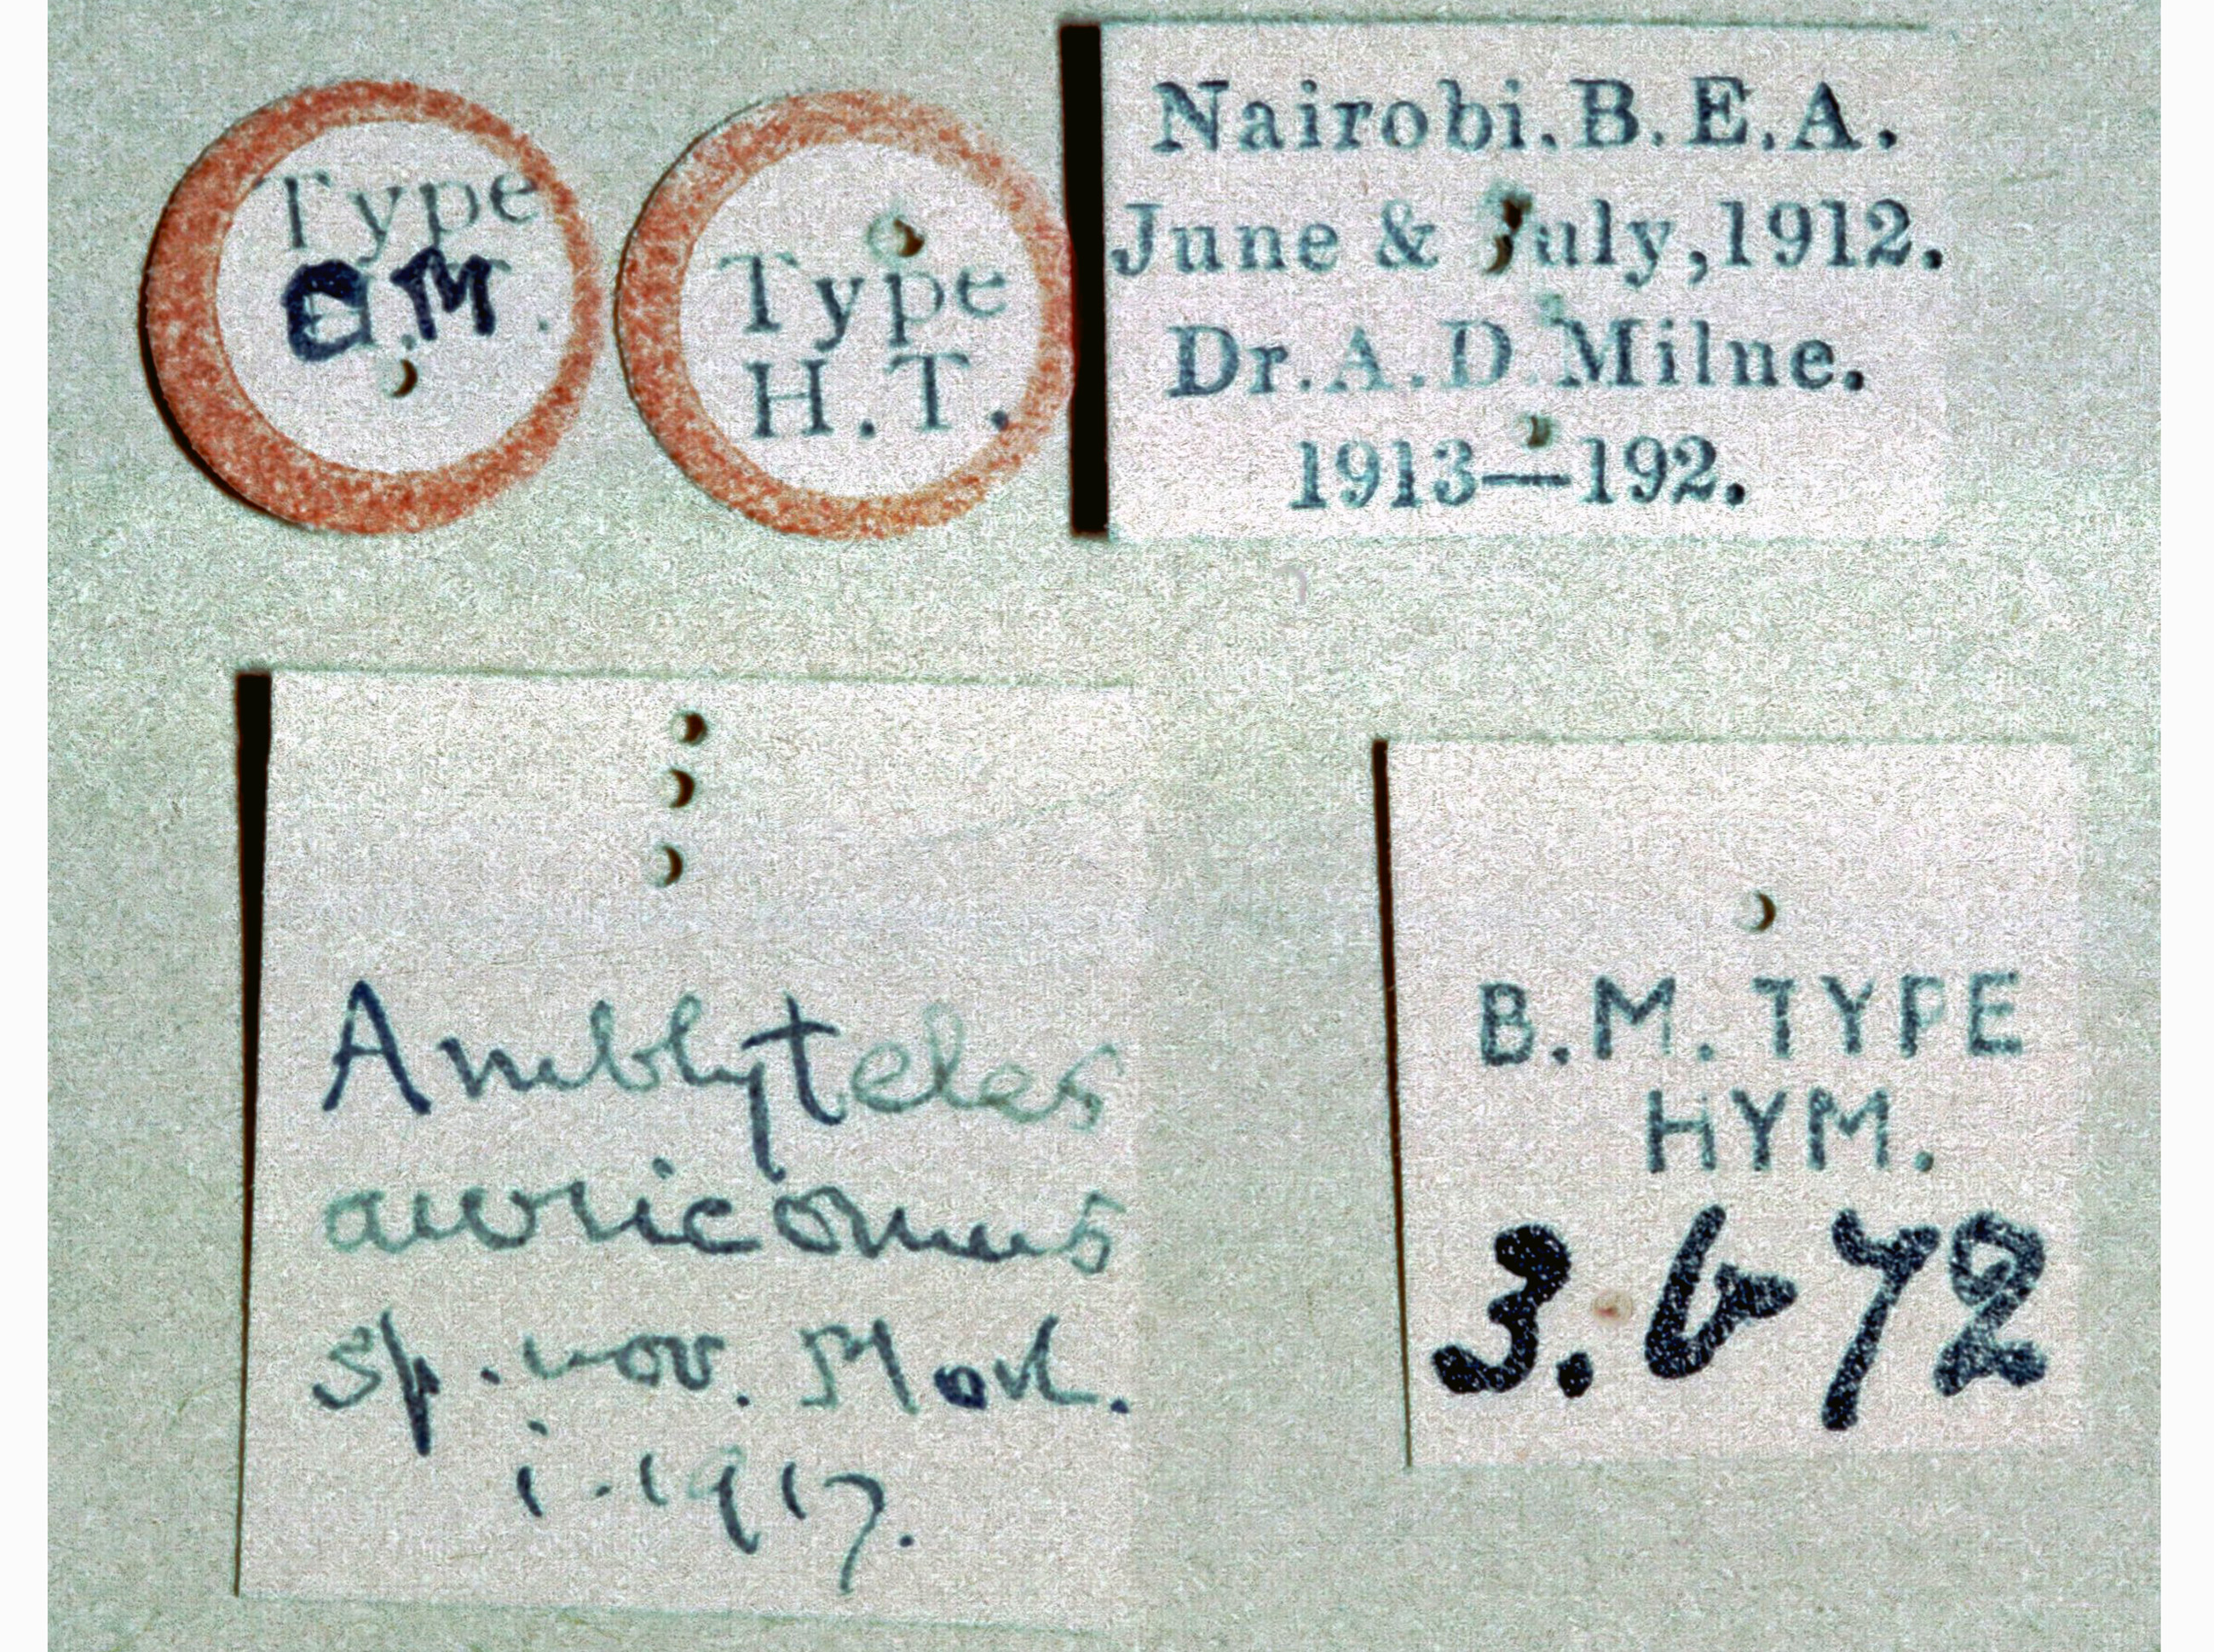 Type
Type
H.T.
Nairobi.B.E.A.
June & July,1912.
Dr.A.D.Milne.
1913—192.
Amblyteles
auricomus
sp. nov. Morl.
i.1917.
B.M. TYPE
HYM.
3.b72